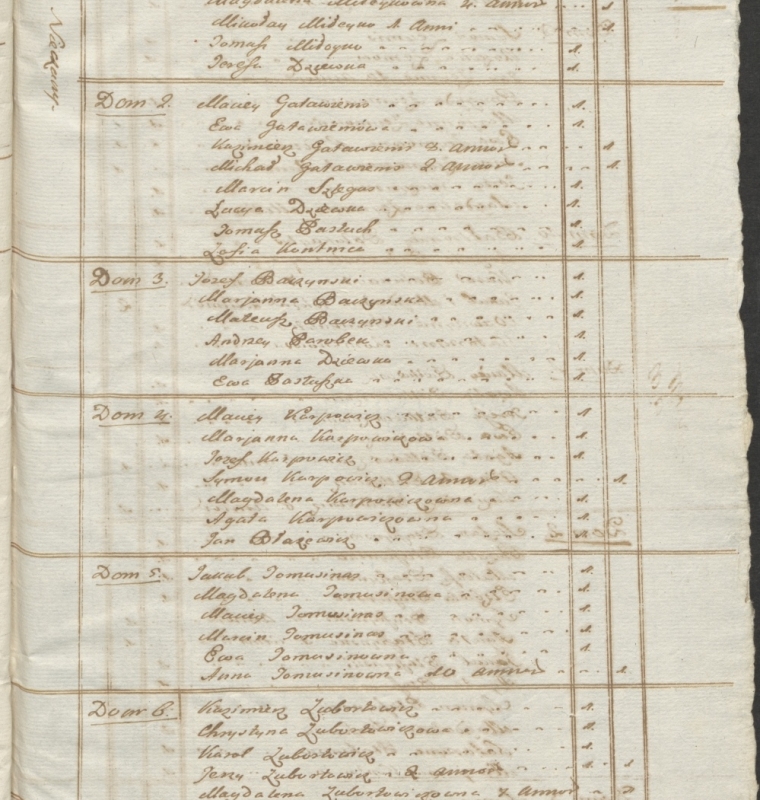 Magdalena Mideykowna 4. annor 1.
Mikołay Mideyko 1. Anni 1.
Tomasz Mideyko 1.
Teresa Dziewka 1.
Dom 2. Maciey Gatawienis 1.
Ewa Gatawieniowa 1.
Kazimierz Gatawienis 3. annor 1.
Michał Gatawienis 2 annor 1.
Marcin Szlegar 1.
Łucya Dziewka 1.
Tomasz Pastuch 1.
Zofia Kontnica 1.
Dom 3. Jozef Baczynski 1.
Marjanna Baczynska 1.
Mateusz Baczynski 1.
Andrzey Parobek 1.
Marjanna Dziewka 1.
Ewa Pastuszka 1.
Dom 4. Maciey Karpowicz 1.
Marjanna Karpowiczowa 1.
Jozef Karpowicz 1.
Symon Karpowicz 2 annor 1.
Magdalena Karpowiczowna 1.
Agata Karpowiczowna 1.
Jan Błazewicz 1.
Dom 5. Jakub Tomusinas 1.
Magdalena Tomusinowa 1.
Maciey Tomusinas 1.
Marcin Tomusinas 1.
Ewa Tomusinowna 1.
Anna Tomusinowna 10 annor 1.
Dom 6. Kazimierz Zubortowicz 1.
Chrystyna Zubortowiczowa 1.
Karol Zubortowicz 1.
Jerzy Zubortowicz 2 annor 1.
Magdalena Zubortowiczowna annor